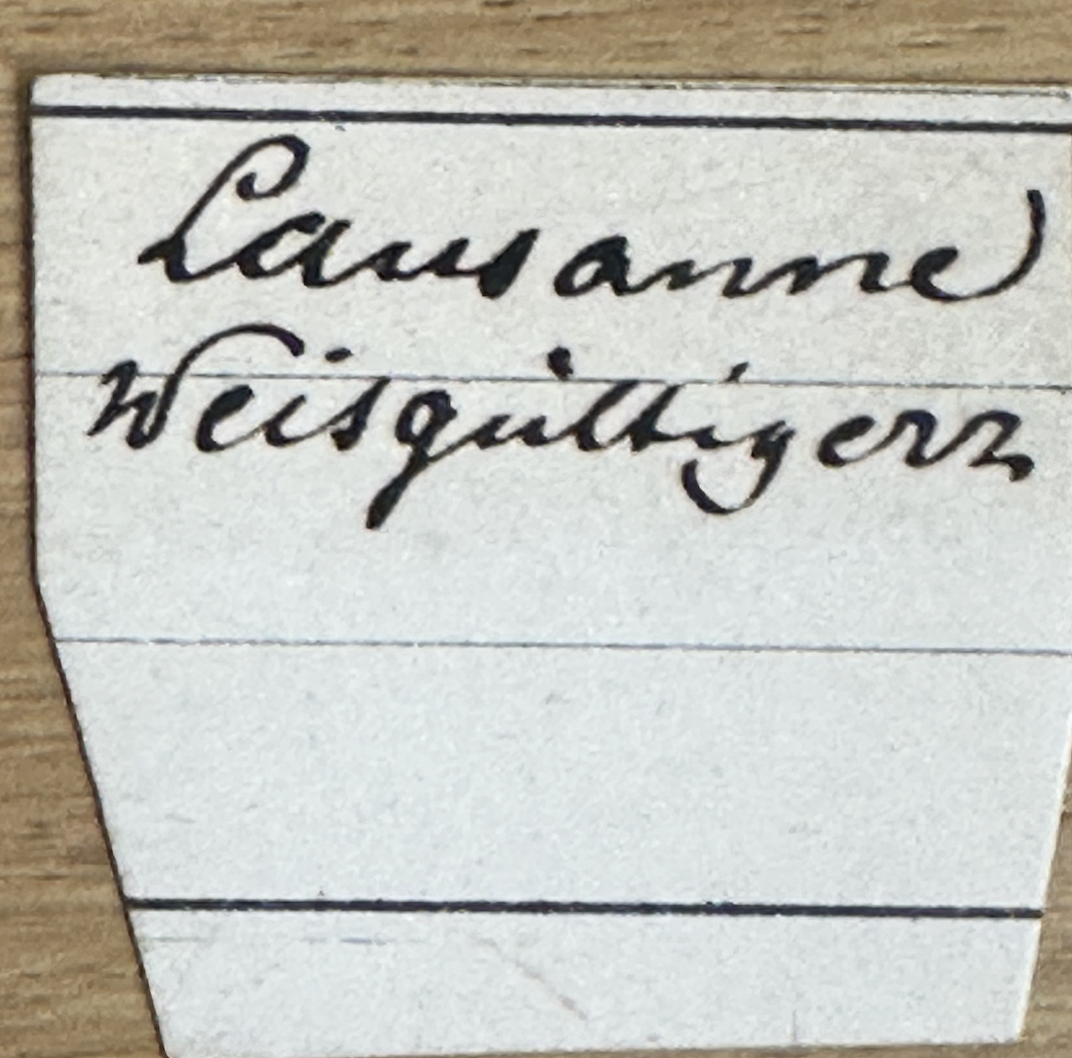 Lausanne
Weisgültigerz